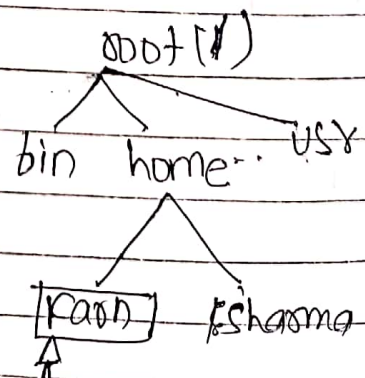 root (/)
bin home .. usr
karn ksharma